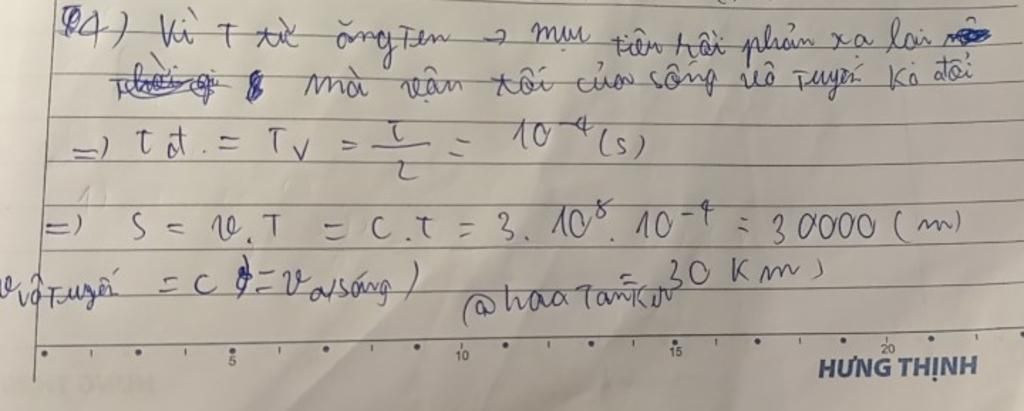 4) Vì T từ ăngTen → mục tiêu rồi phản xạ lại
mà vận tốc của sóng vô Tuyến Ko đổi
=) Tđ. = Tv = T/2 = 10⁻⁴ (s)
=) S = v.T = C.T = 3. 10⁸. 10⁻⁴ = 30000 (m)
v vô Tuyến = C (= v a/sáng) = 30 Km)
5 10 15 20
HƯNG THỊNH